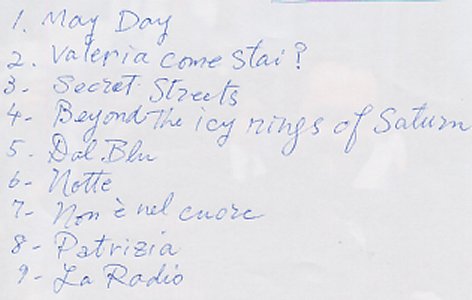 1. May Day
2. Valeria come stai?
3- Secret Streets
4- Beyond The icy rings of Saturn
5- Dal Blu
6- Notte
7- Non è nel cuore
8- Patrizia
9- La Radio